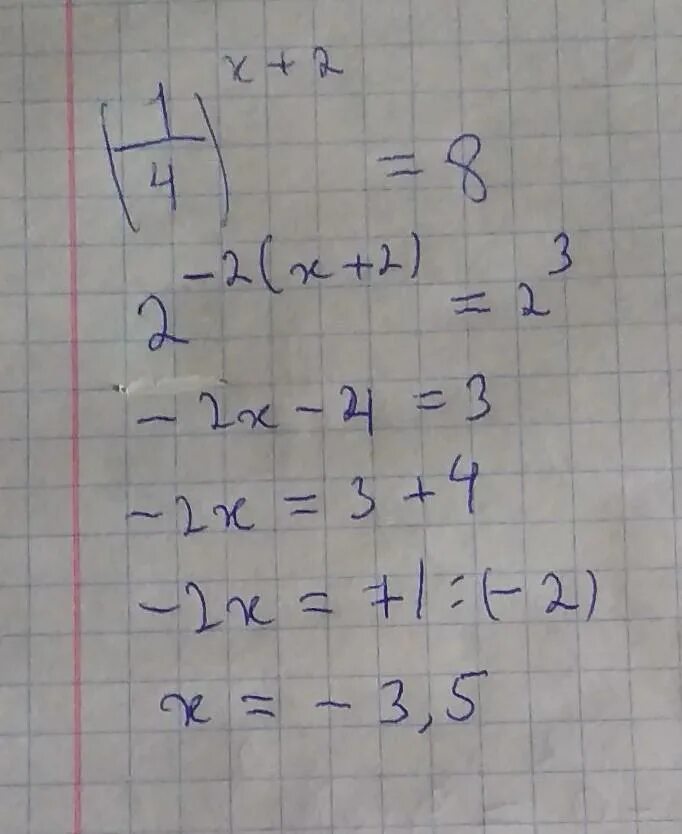 (1/4)^(x+2) = 8
2^(-2(x+2)) = 2^3
-2x - 4 = 3
-2x = 3 + 4
-2x = 7 | :(-2)
x = -3,5